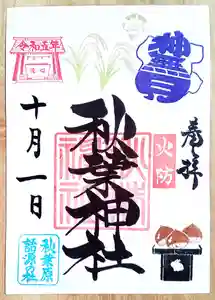 神無月
奉拝
火防
秋葉神社
令和五年
十月一日
秋葉原
語源